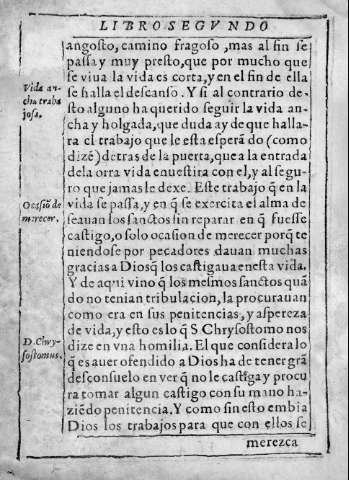 LIBRO SEGVNDO
angosto, camino fragoso, mas al fin se
passa y muy presto, que por mucho que
se viua la vida es corta, y en el fin de ella
se halla el descanso. Y si al contrario de-
Vida an-
cha traba
josa.
sto alguno ha querido seguir la vida an-
cha y holgada, que duda ay de que halla-
ra el trabajo que le esta esperādo (como
dizē) detras de la puerta, que a la entrada
de la otra vida enuestira con el, y al segu-
ro que jamas le dexe. Este trabajo q̄ en la
Ocasiō de
merecer.
vida se passa, y en q̄ se exercita el alma de
seauan los sanctos sin reparar en q̄ fuesse
castigo, o solo ocasion de merecer porq̄ te
niendose por pecadores dauan muchas
gracias a Dios q̄ los castigaua en esta vida.
Y de aqui vino q̄ los mesmos sanctos quā
do no tenian tribulacion, la procurauan
como era en sus penitencias, y aspereza
D. Chry-
sostomus.
de vida, y esto es lo q̄ S. Chrysostomo nos
dize en vna homilia. El que considera lo
q̄ es auer ofendido a Dios ha de tener grā
desconsuelo en ver q̄ no le castiga y procu
ra tomar algun castigo con su mano ha-
ziēdo penitencia. Y como sin esto embia
Dios los trabajos para que con ellos se
merezca